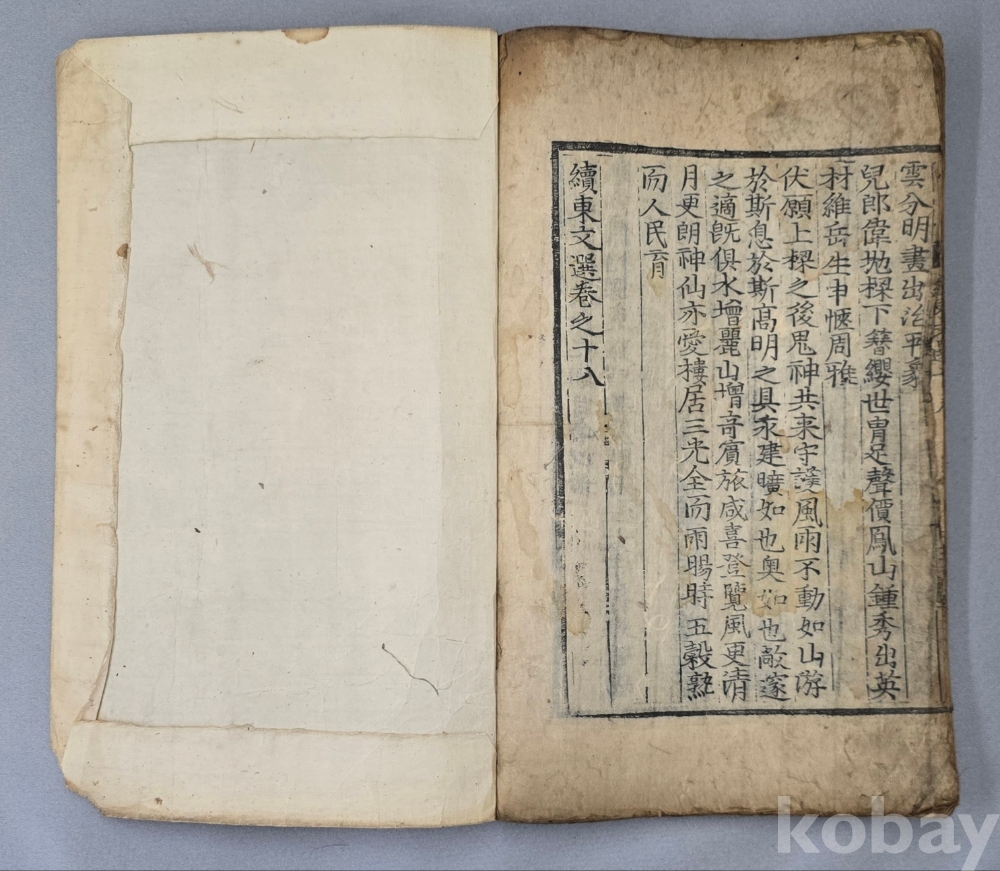 雲分明畫出治平象
兒郎偉抛樑下簪纓世胄足聲價鳳山鍾秀出英
材維岳生申愜周雅
伏願上樑之後鬼神共来守護風雨不動如山游
於斯息於斯高明之具永建曠如也奥如也敞邃
之適旣俱水增麗山增竒賓旅咸喜登覽風更清
月更朗神仙亦愛樓居三光全而雨暘時五穀熟
而人民育
續東文選卷之十八
kobay